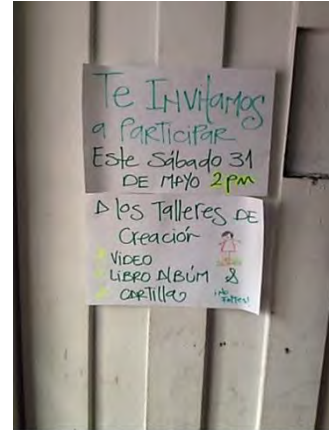 Te INVitamos
a PARTICIPAR
Este Sábado 31
DE MAYO 2 pm
A los Talleres DE
Creación
VIDEO
LIBRO ALBÚM &
CARTILLA